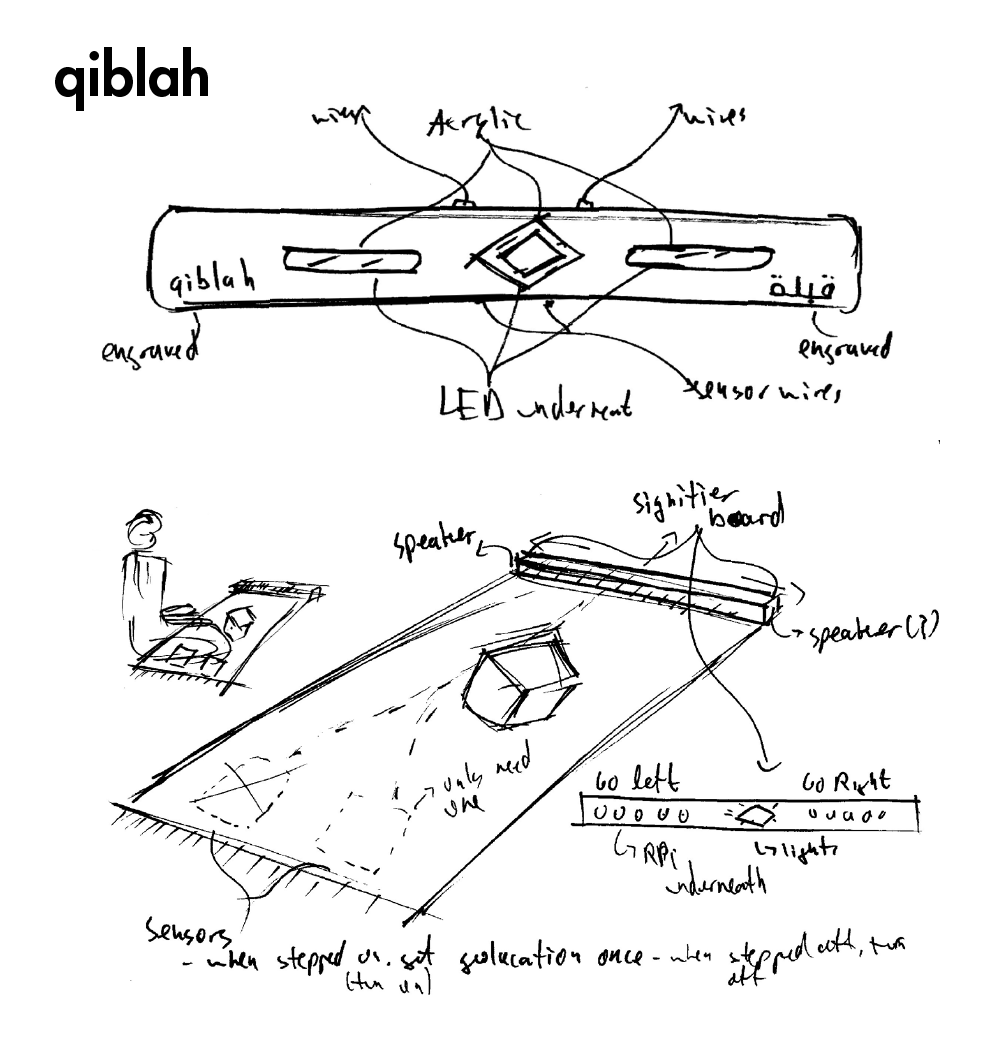 qiblah
wires
Acrylic
wires
qiblah
قبلة
engraved
engraved
LED underneat
sensor wires
signifier
board
speaker
speaker (?)
only need
one
Go left
Go Right
RPi
underneath
lights
sensors
- when stepped on, get geolocation once - when stepped off, turn
(turn on)
off